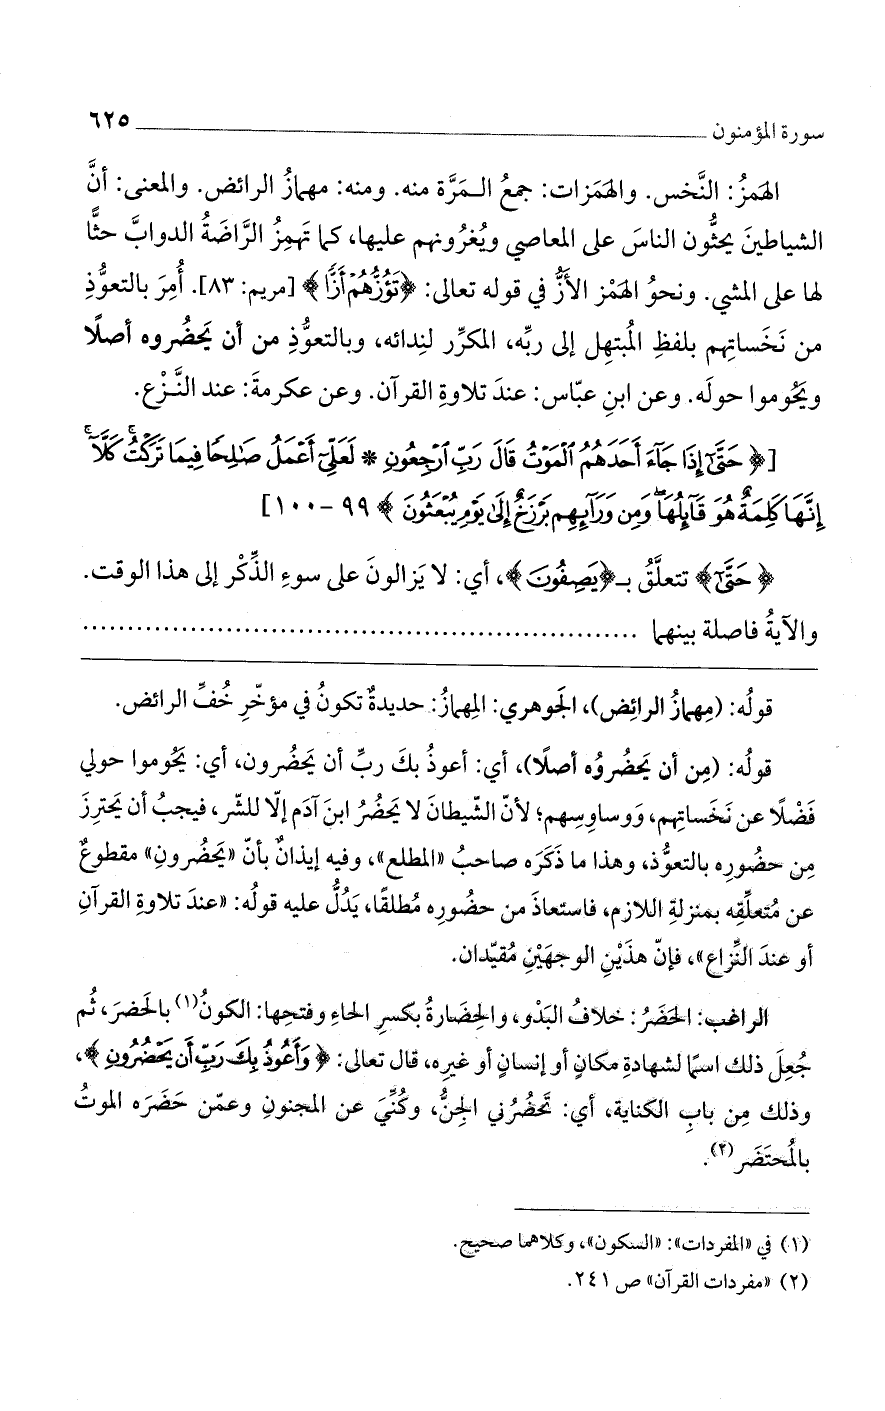 سورة المؤمنون ٦٢٥
الهَمزُ: النَّخس. والهَمَزات: جمعُ المَرَّة منه. ومنه: مهمازُ الرائض. والمعنى: أنَّ
الشياطينَ يحثُّون الناسَ على المعاصي ويُغرُونهم عليها، كما تَهمِزُ الرَّاضَةُ الدوابَّ حثًّا
لها على المشي. ونحوُ الهَمْز الأَزُّ في قوله تعالى: ﴿تَؤُزُّهُمْ أَزًّا﴾ [مريم: ٨٣]. أُمِرَ بالتعوُّذِ
من نَخَساتِهم بلفظِ المُبتهِل إلى ربِّه، المكرِّر لنِدائه، وبالتعوُّذِ من أن يَحضُروه أصلًا
ويَحُوموا حولَه. وعن ابنِ عبّاس: عندَ تلاوةِ القرآن. وعن عكرمةَ: عند النَّزْع.
[﴿حَتَّىٰٓ إِذَا جَآءَ أَحَدَهُمُ ٱلْمَوْتُ قَالَ رَبِّ ٱرْجِعُونِ * لَعَلِّىٓ أَعْمَلُ صَـٰلِحًا فِيمَا تَرَكْتُ ۚ كَلَّآ ۚ
إِنَّهَا كَلِمَةٌ هُوَ قَآئِلُهَا ۖ وَمِن وَرَآئِهِم بَرْزَخٌ إِلَىٰ يَوْمِ يُبْعَثُونَ﴾ ٩٩ -١٠٠]
﴿حَتَّىٰٓ﴾ تتعلَّقُ بـ﴿يَصِفُونَ﴾، أي: لا يَزالونَ على سوءِ الذِّكْر إلى هذا الوقت.
والآيةُ فاصلة بينهما ................................................................
قولُه: (مِهمازُ الرائِض)، الجَوهري: المِهمازُ: حديدةٌ تكونُ في مؤخّرِ خُفِّ الرائض.
قولُه: (مِن أن يَحضُروُه أصلًا)، أي: أعوذُ بكَ ربِّ أن يَحضُرون، أي: يَحُوموا حولي
فَضْلًا عن نَخَساتِهم، وَوساوِسِهم؛ لأنّ الشّيطانَ لا يَحضُر ابنَ آدَم إلّا للشّر، فيجبُ أن يَحترِزَ
مِن حضُورِه بالتعوُّذ، وهذا ما ذَكَرَه صاحبُ «المطلع»، وفيه إيذانٌ بأنّ «يَحضُرونِ» مقطوعٌ
عن مُتعلِّقِه بمنزلةِ اللازم، فاستعاذَ من حضُورِه مُطلقًا، يَدُلُّ عليه قولُه: «عندَ تلاوةِ القرآنِ
أو عندَ النِّزاع»، فإنّ هذَيْنِ الوجهَيْنِ مُقيّدان.
الراغب: الحَضَرُ: خلافُ البَدْو، والحِضَارةُ بكسرِ الحاءِ وفتحِها: الكونُ(١) بالحَضرَ، ثُم
جُعِلَ ذلك اسمًا لشهادةِ مكانٍ أو إنسانٍ أو غيرِه، قال تعالى: ﴿وَأَعُوذُ بِكَ رَبِّ أَن يَحْضُرُونِ﴾،
وذلك مِن بابِ الكناية، أي: تَحضُرُني الجنُّ، وكُنِّيَ عن المجنونِ وعمّن حَضَرَه الموتُ
بالمُحتَضَر(٢).
(١) في «المفردات»: «السكون»، وكلاهما صحيح.
(٢) «مفردات القرآن» ص ٢٤١.